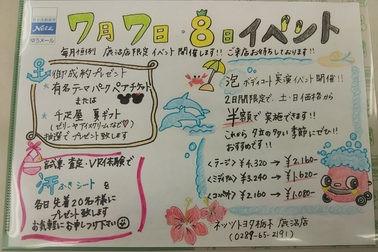 Netz
ゆうメール
7月7日・8日イベント
毎月恒例 鹿沼店限定イベント開催します!! ご来店お待ちしております!!
御成約プレゼント
有名テーマパークペアチケット
または
千疋屋 夏ギフト
(ゼリーやアイスクリームなど♡)
抽選でプレゼント致します
泡ボディコート実演イベント開催!!
2日間限定で、土・日価格から
半額で実施できます!!
これから夕立の多い季節にぜひ!!
おすすめです!!
<ラージ> ¥4,320 → ¥2,160-
<ミディアム> ¥3,240 → ¥1,620-
<コンパクト> ¥2,160 → ¥1,080-
試乗・査定・VR体験で
汗ふきシートを
各日先着20名様に
プレゼント致します
お気軽にお申しつけ下さい
ネッツトヨタ栃木 鹿沼店
(0289-65-2191)